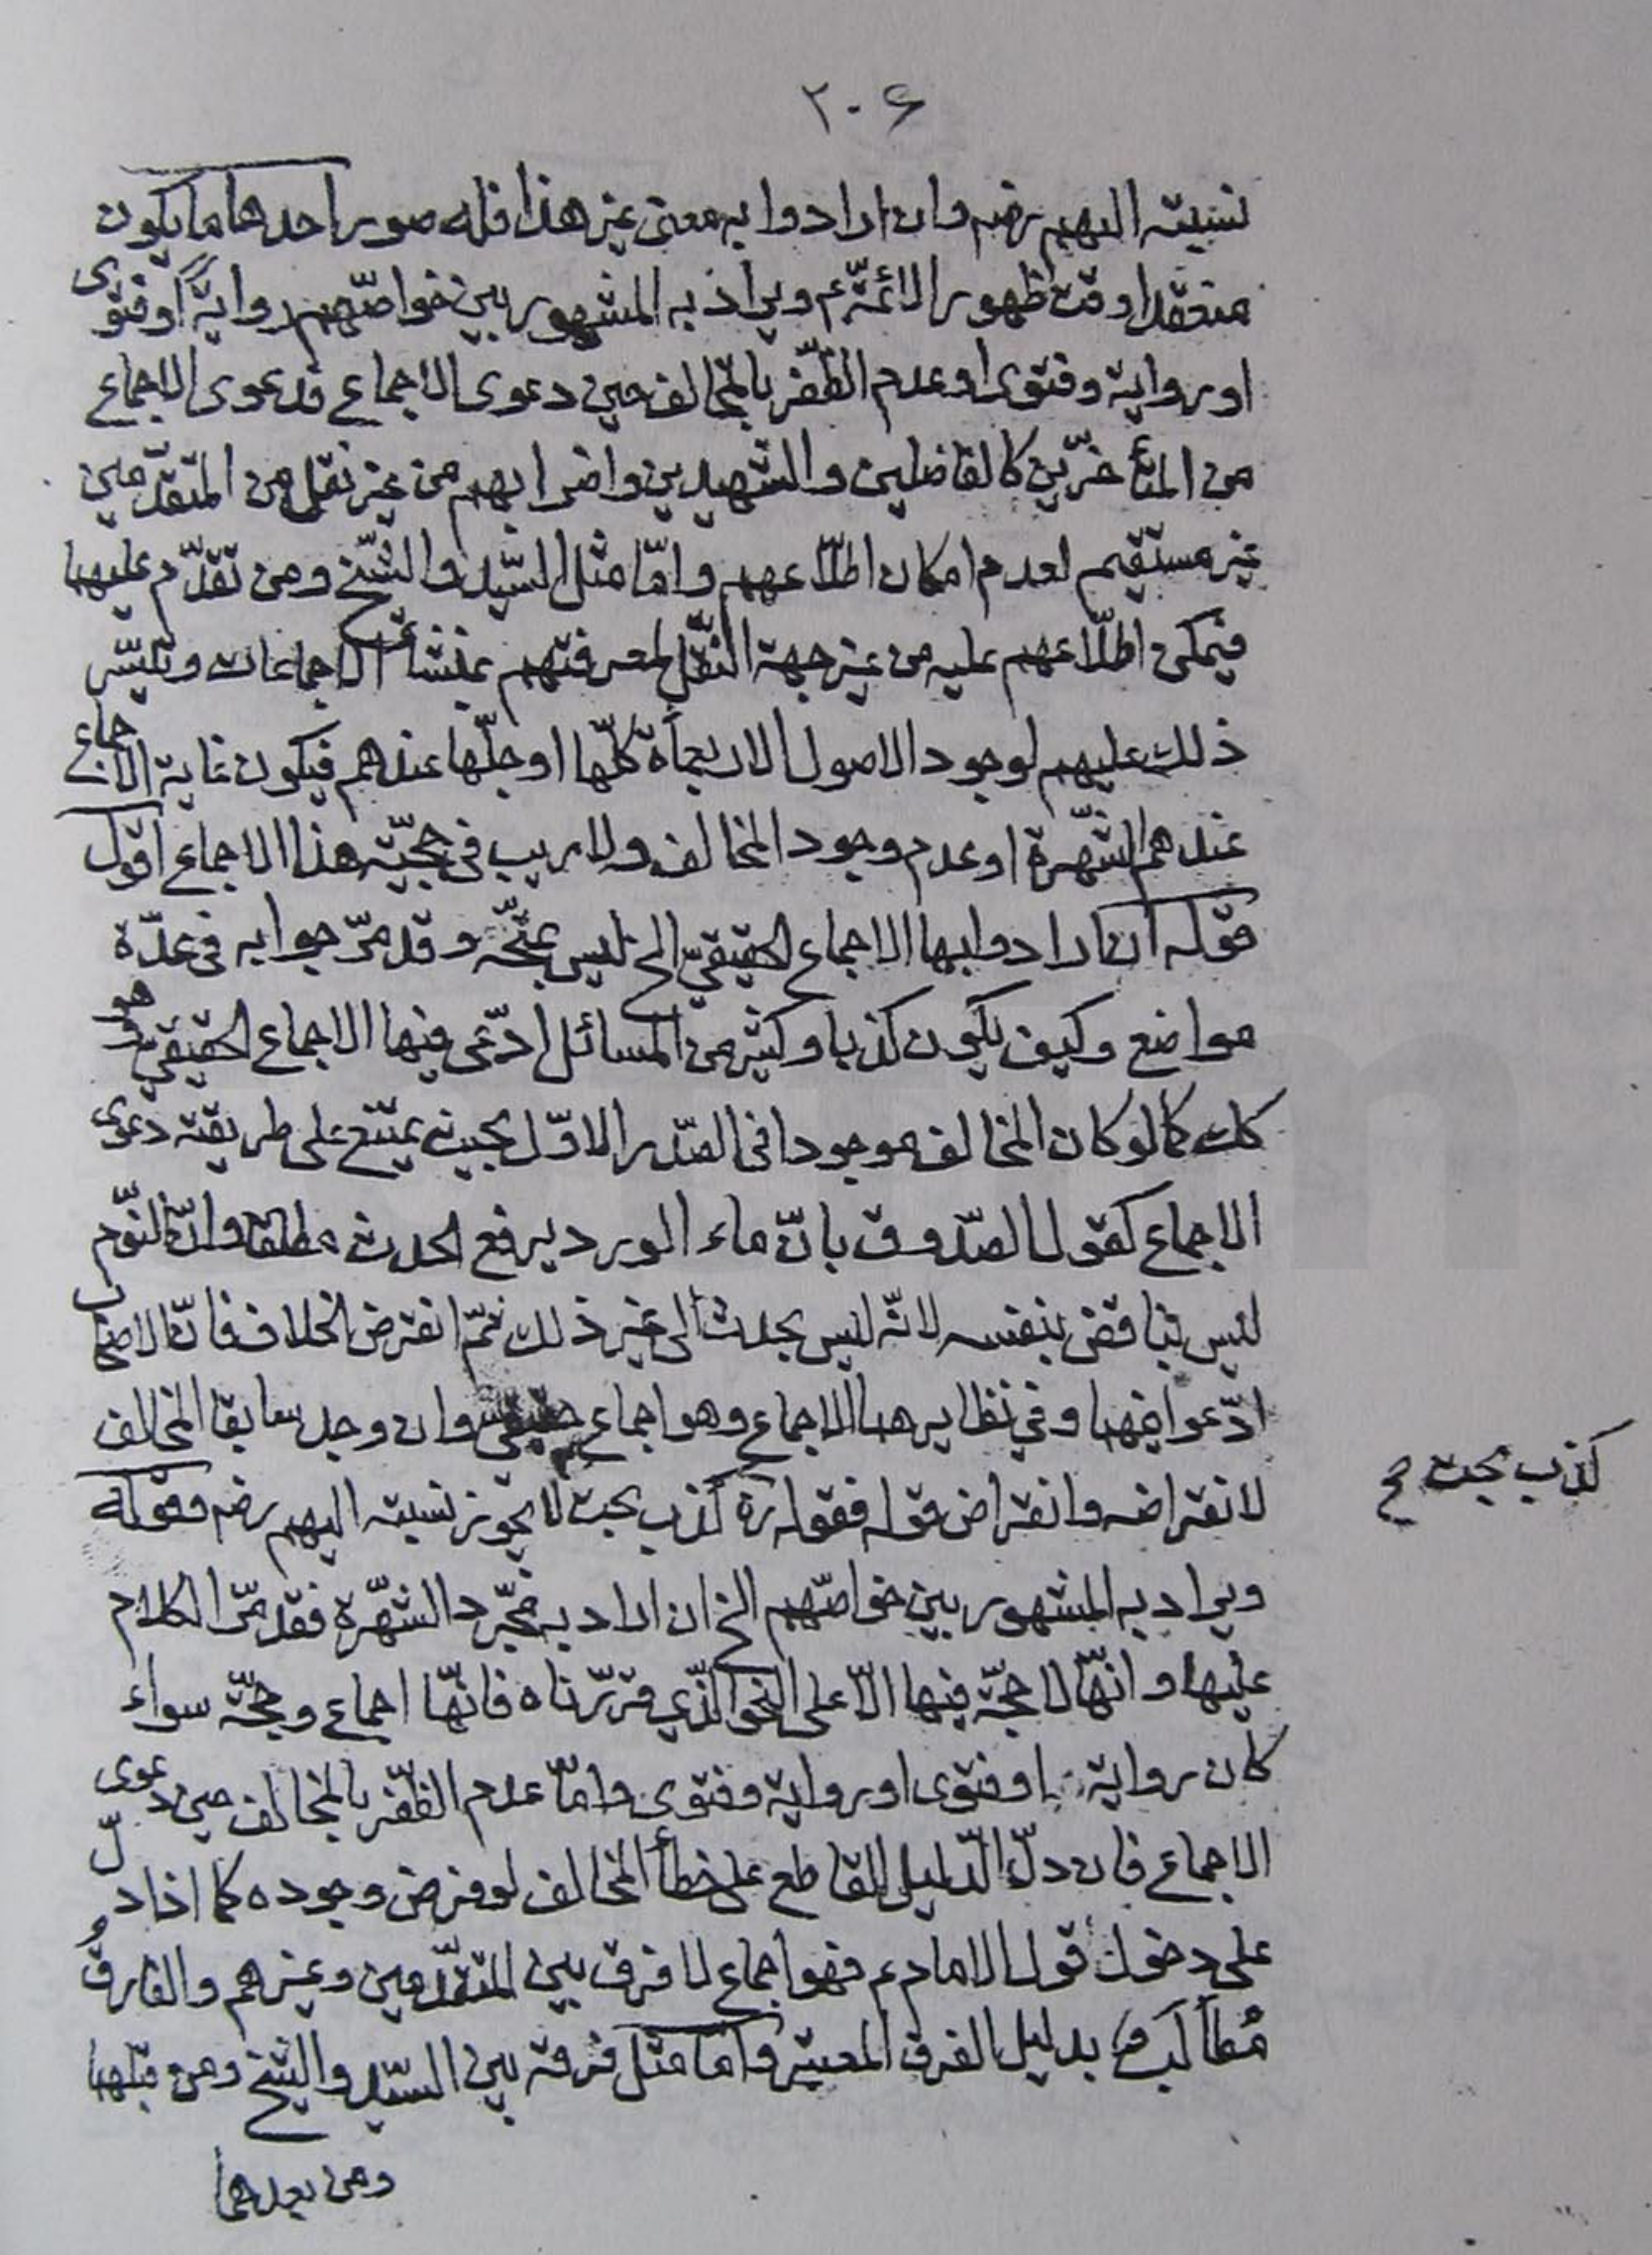 ٢٠۶
نسبته اليهم رضم وان ارادوا به معنى غير هذا فله صور احدها ما يكون
منعقدا وقت ظهور الائمّة ع ويراد به المشهور بين خواصّهم رواية او فتوى
او رواية وفتوى او عدم الظّفر بالمخالف حين دعوى الاجماع فدعوى الاجماع
من المتأخّرين كالفاضلين والشهيدين واضرابهم من غير نقل من المتقدّمين
غير مستقيم لعدم امكان اطلاعهم وامّا مثل السّيد والشيخ ومن تقدّم عليهما
فيمكن اطلاعهم عليه من غير جهة النّقل لمعرفتهم بمنشأ الاجماعات وتيسّر
ذلك عليهم لوجود الاصول الاربعمأة كلّها او جلّها عندهم فيكون غاية الاجماع
عندهم الشّهرة او عدم وجود المخالف ولا ريب في حجيّة هذا الاجماع اقول
قوله ان ارادوا بها الاجماع الحقيقيّ الخ ليس بمتّجه وقد مرّ جوابه في عدّة
مواضع وكيف يكون كذبا وكثير من المسائل ادّعى فيها الاجماع الحقيقيّ وهو
كك كما لو كان المخالف موجودا في الصّدر الاوّل بحيث يمتنع على طريقته دعوى
الاجماع كقول الصّدوق بانّ ماء الورد يرفع الحدث مطلقا وانّ النّوم
ليس بناقض بنفسه لانّه ليس بحدث الى غير ذلك ثمّ انقرض الخلاف فانّ الاصحاب
ادّعوا فيهما وفي نظايرهما الاجماع وهو اجماع حقيقي وان وجد سابقا المخالف
لانقراضه وانقراض قوله فقوله ره كذب بحت لا يجوز نسبته اليهم رضم وقوله
كذب بحت ح
ويراد به المشهور بين خواصّهم الخ ان اراد به مجّرد الشّهرة فقد مّر الكلام
عليها وانّها لا حجّة فيها الّا على النحو الّذي قرّرناه فانّها اجماع وحجّة سواء
كان رواية او فتوى او رواية وفتوى وامّا عدم الظّفر بالمخالف حين دعوى
الاجماع فان دلّ الدّليل القاطع على خطأ المخالف لو فرض وجوده كما اذا دلّ
على دخول قول الامام ع فهو اجماع لا فرق بين المتقدّمين وغيرهم والفارق
مُطالَب بدليل الفرق المعتبر وامّا مثل فرقه بين السّيد والشيخ ومن قبلهما
ومن بعدهما